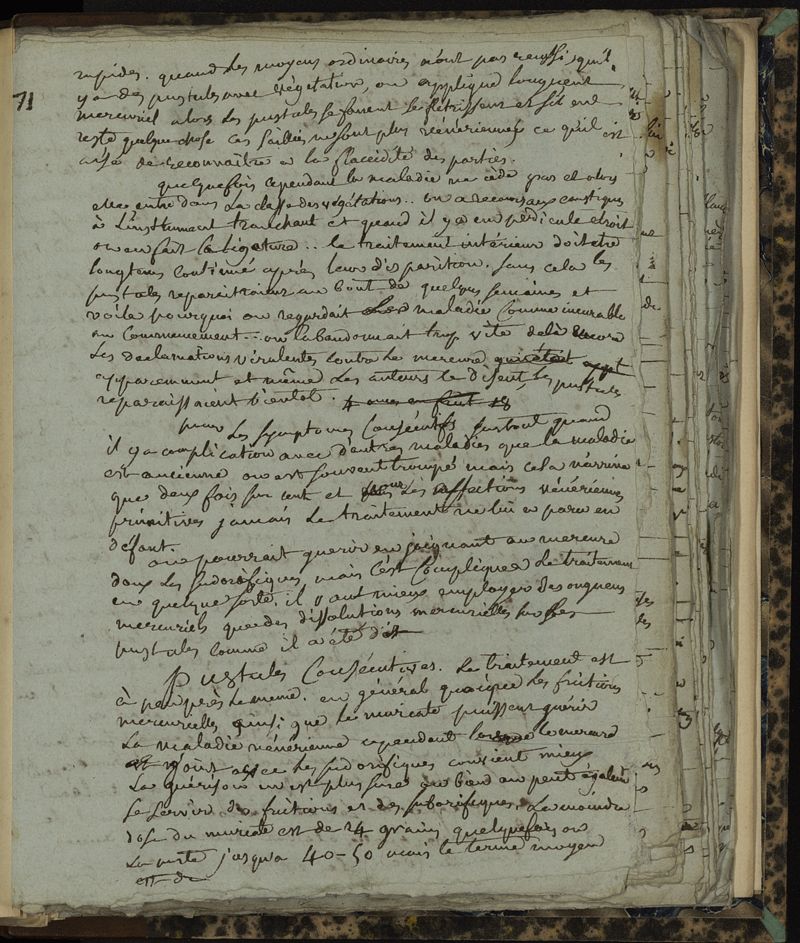 71
rapides. quand les moyens ordinaires n'ont pas reussi, qu'il
y a des pustules avec végétation, on applique l'onguent
mercuriel alors les pustules se fanent se flétrissent et s'il en
reste quelque chose ces saillies ne sont plus vénériennes ce qu'il est
aisé de reconnaitre a la flaccidité des parties.
quelquefois cependant la maladie ne cède pas et alors
elle entre dans la classe des végétations.. on a recours aux caustiques
à l'instrument tranchant et quand il y a un pédicule étroit
on en fait la ligature.. le traitement intérieur doit etre
longtems continué après leur disparition. sans cela les
pustules reparaitraient au bout de quelques semaines et
voila pourquoi on regardait la maladie comme incurable
au commencement.. on l'abandonnait trop vite delà encore
les declamations virulentes contre le mercure qui était
apparemment et même les auteurs le disent, les pustules
reparaissaient bientot.
pour les symptomes consécutifs surtout quand
il y a complication avec d'autres maladies que la maladie
est ancienne on est souvent trompé mais cela n'arrive
que deux fois sur cent et pour les affections vénériennes
primitives jamais le traitement ne lui a paru en
défaut.
on pourrait guerir en joignant au mercure
doux les sudorifiques, mais c'est compliquer le traitement
en quelque sorte. il vaut mieux employer des onguens
mercuriels que des dissolutions mercurielles sur les
pustules comme il a été dit
Pustules Consécutives. Le traitement est
à peu près le meme. en général quoique les frictions
mercurielles ainsi que le muriate puissent guérir
la maladie vénérienne cependant le mercure
joint avec les sudorifiques convient mieux
la guérison en est plus sure ou bien on peut également
se servir de frictions et des sudorifiques. La moindre
dose du muriate est de 24 grains quelquefois on
la porte jusqu'a 40-50 mais le terme moyen
est de